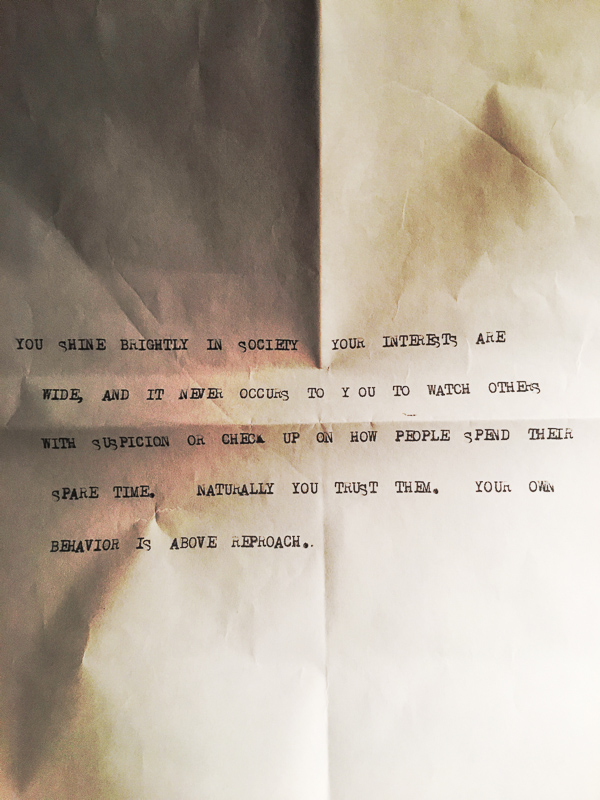 YOU SHINE BRIGHTLY IN SOCIETY YOUR INTERESTS ARE
WIDE, AND IT NEVER OCCURS TO Y OU TO WATCH OTHERS
WITH SUSPICION OR CHECK UP ON HOW PEOPLE SPEND THEIR
SPARE TIME. NATURALLY YOU TRUST THEM. YOUR OWN
BEHAVIOR IS ABOVE REPROACH..